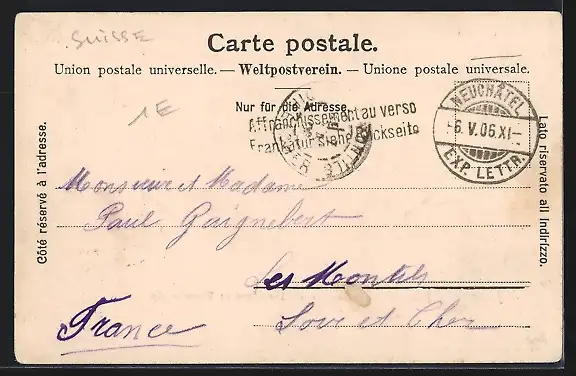 SUISSE
Carte postale.
Union postale universelle. — Weltpostverein. — Unione postale universale.
1E
Nur für die Adresse.
Affranchissement au verso
Frankatur siehe Rückseite
NEUCHÂTEL
-6.V.06.XI-
EXP. LETTR.
Côté réservé à l'adresse.
Lato riservato all indirizzo.
Monsieur et Madame
Paul Gaignebert
Les Montils
France
Loir et Cher